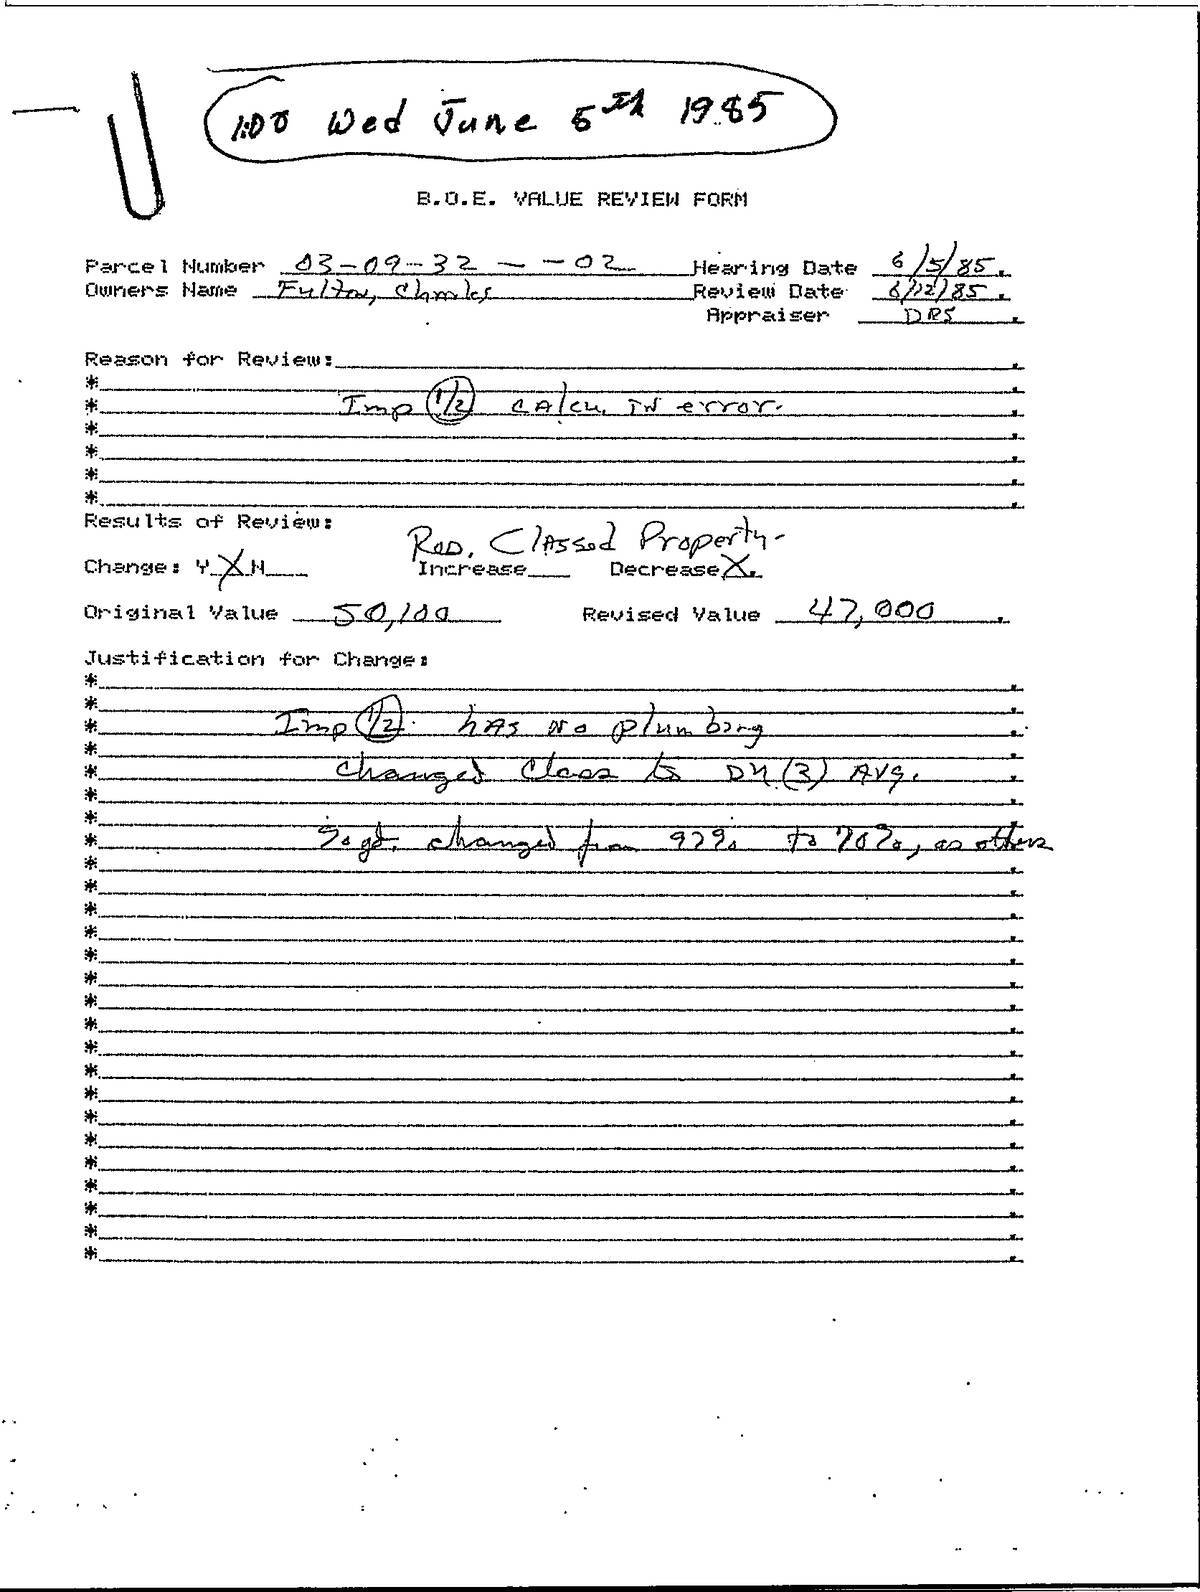 1:00 Wed June 5th 1985
B.O.E. VALUE REVIEW FORM
Parcel Number 03-09-32 - -02 Hearing Date 6/5/85.
Owners Name Fulton, Charles Review Date 6/12/85.
Appraiser DRS.
Reason for Review:
*
* Imp 1/2 CAlcu. IN error.
*
*
*
*
Results of Review:
Res. Classed Property.
Change: Y X N Increase Decrease X.
Original Value 50,100 Revised Value 47,000.
Justification for Change:
*
*
* Imp 1/2. hAs No plumbing
*
* changed Class to D4 (3) AVg.
*
*
* % gd. changed from 92% to 70%, as others
*
*
*
*
*
*
*
*
*
*
*
*
*
*
*
*
*
*